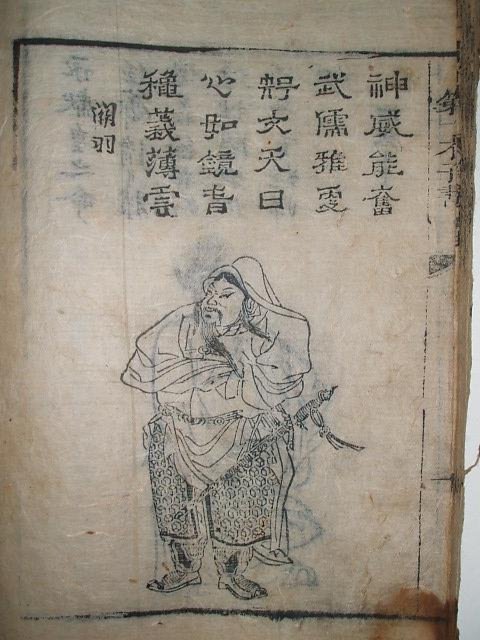 神威能奮
武儒雅更
知文天日
心如鏡春
龝義薄雲
關羽